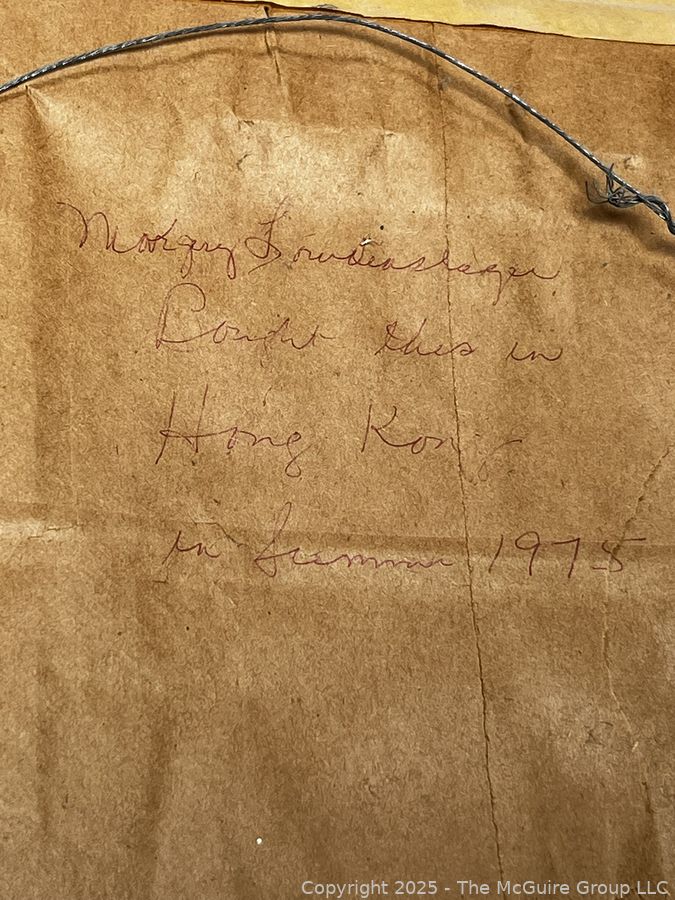 Lowdenslager
Bought this in
Hong Kong
in Summer 1975
Copyright 2025 - The McGuire Group LLC